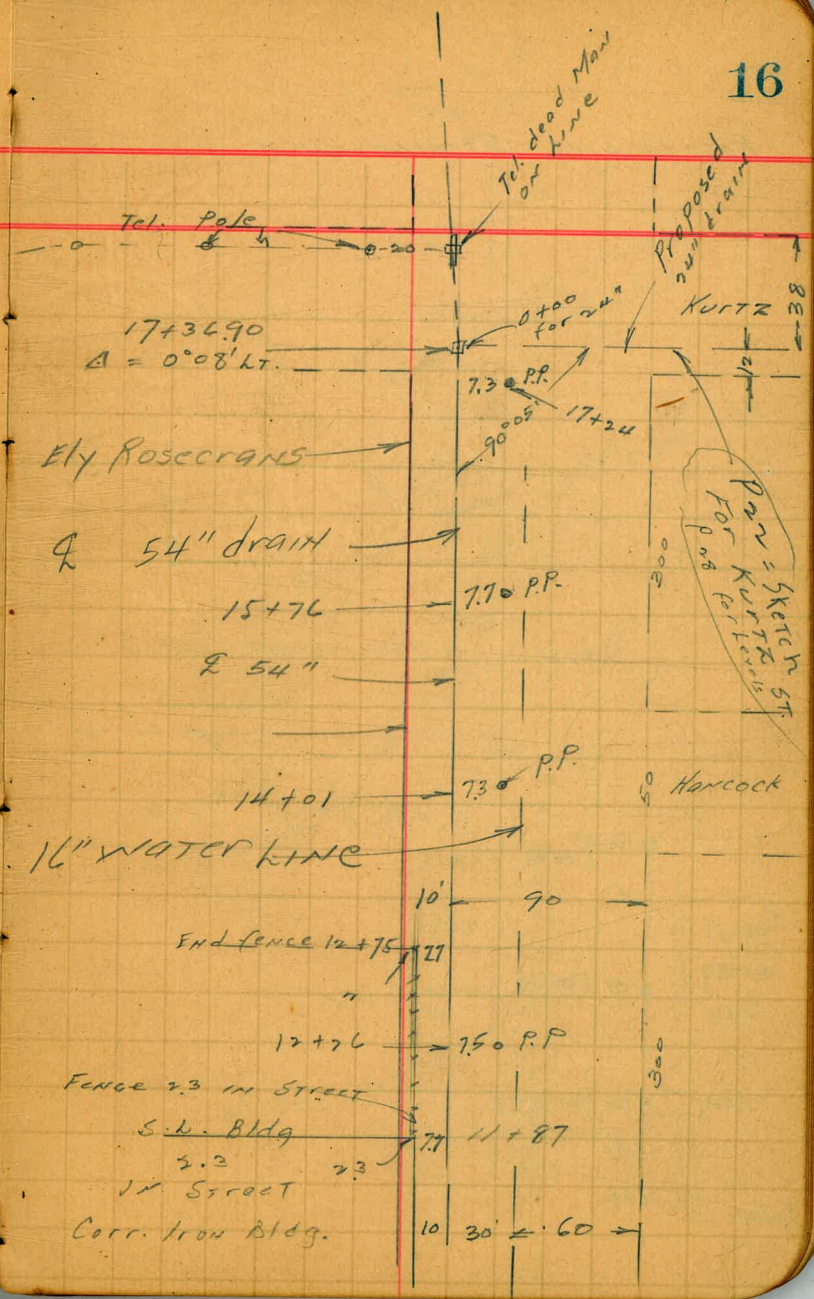 16
Tel. dead Man
on Line
Tel. Pole
20
Proposed
24" drain
38
Kurtz
12
0+00
for 24"
17+36.90
Δ = 0°08' Lt.
7.3 P.P.
17+24
90°05'
Ely Rosecrans
℄ 54" drain
300
Sketch
For Kurtz St.
for Levels
15+76
7.7 P.P.
℄ 54"
P.P.
14+01
7.3
50
Hancock
16" Water Line
10'
90
End fence 12+75
7.7
"
12+26
7.5 P.P
300
Fence 2.3 in Street
S.L. Bldg
7.7
11+87
2.3
2.3
in Street
Corr. Iron Bldg.
10
30'
60